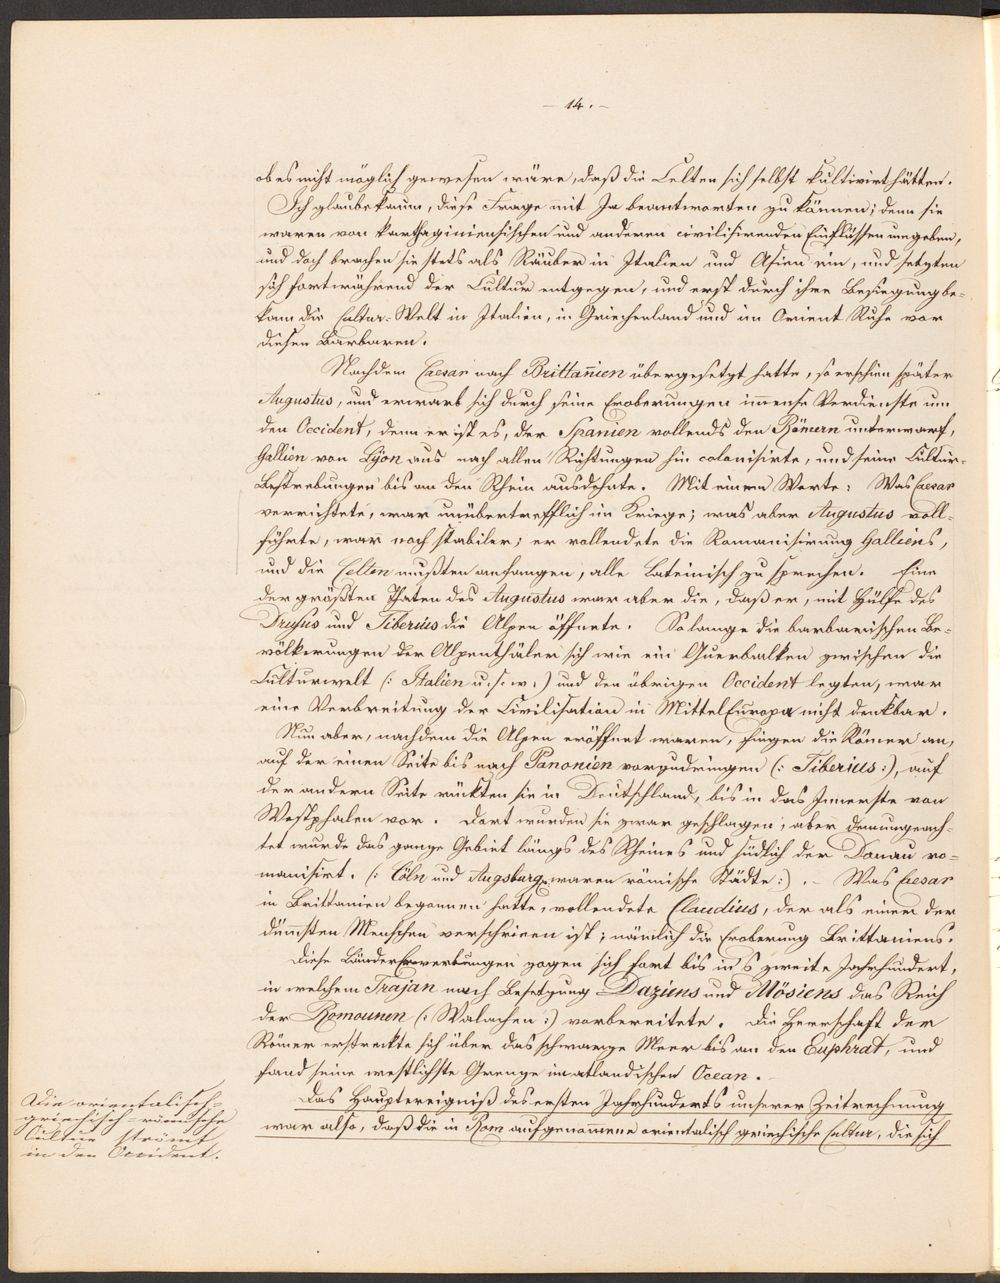 — 14. —
ob es nicht möglich gewesen wäre, daß die Celten sich selbst kultivirt hätten.
Ich glaube kaum, diese Frage mit Ja beantworten zu können; denn sie
waren von karthaginiensischen und anderen civilisirenden Einflüssen umgeben,
und doch brachen sie stets als Räuber in Italien und Asien ein, und setzten
sich fortwährend der Cultur entgegen, und erst durch ihre Besiegung be=
kam die Cultur=Welt in Italien, in Griechenland und im Orient Ruhe vor
diesen Barbaren.
Nachdem Caesar nach Brittanien übergesetzt hatte, so erschien später
Augustus, und erwarb sich durch seine Eroberungen im̄ense Verdienste um
den Occident, denn er ist es, der Spanien vollends den Römern unterwarf,
Gallien von Lyon aus nach allen Richtungen hin colonisirte, und seine Cultur=
Bestrebungen bis an den Rhein ausdehnte. Mit einem Worte: Was Caesar
verrichtete, war unübertrefflich im Kriege; was aber Augustus voll=
führte, war noch stabiler; er vollendete die Romanisirung Galliens,
und die Celten mußten anfangen, alle Lateinisch zu sprechen. Eine
der größten Thaten des Augustus war aber die, daß er, mit Hülfe des
Drusus und Tiberius die Alpen öffnete. Solange die barbarischen Be=
völkerungen der Alpenthäler sich wie ein Querbalken zwischen die
Culturwelt (: Italien u. s. w. :) und den übrigen Occident legten, war
eine Verbreitung der Civilisation in Mittel Europa nicht denkbar.
Nun aber, nachdem die Alpen eröffnet waren, fingen die Römer an,
auf der einen Seite bis nach Panonien vorzudringen (: Tiberius :), auf
der andern Seite rückten sie in Deutschland, bis in das Innerste von
Westphalen vor. Dort wurden sie zwar geschlagen; aber demungeach=
tet wurde das ganze Gebiet längs des Rheines und südlich der Donau ro=
manisirt. (: Cöln und Augsburg waren römische Städte :). — Was Caesar
in Brittanien begonnen hatte, vollendete Claudius, der als einer der
düm̄sten Menschen verschrieen ist; nämlich die Eroberung Brittaniens.
Diese Ländererwerbungen zogen sich fort bis in's zweite Jahrhundert,
in welchem Trajan nach Besetzung Daziens und Mösiens das Reich
der Romounen (: Walachen :) vorbereitete. Die Herrschaft der
Römer erstreckte sich über das schwarze Meer bis an den Euphrat, und
fand seine westlichste Grenze im atlandischen Ocean. —
Das Hauptereigniß des ersten Jahrhunderts unserer Zeitrechnung
war also, daß die in Rom aufgenom̄ene orientalisch griechische Cultur, die sich
Die orientalisch=
griechisch=römische
Cultur strömt
in den Occident.